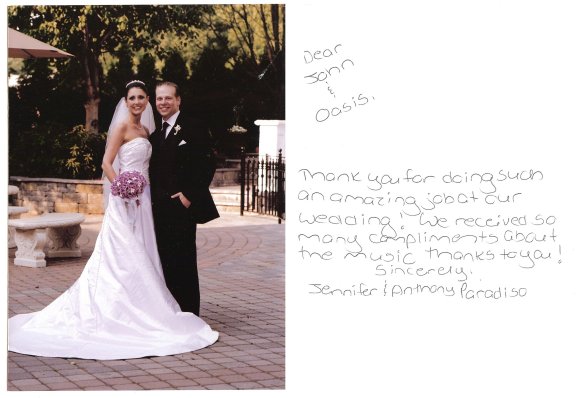 Dear
John
&
Oasis.
Thank you for doing such
an amazing job at our
wedding! We received so
many compliments about
the music thanks to you!
Sincerely,
Jennifer & Anthony Paradiso